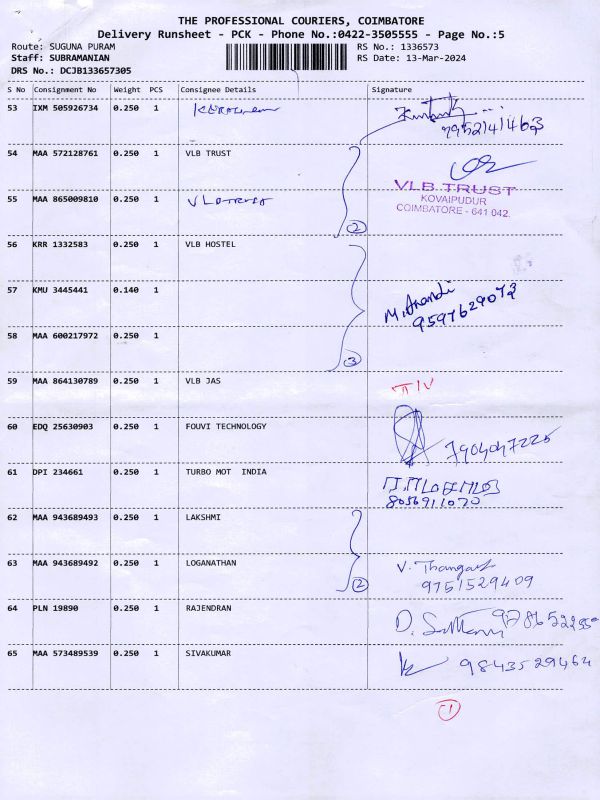 THE PROFESSIONAL COURIERS, COIMBATORE
Delivery Runsheet - PCK - Phone No.:0422-3505555 - Page No.:5
Route: SUGUNA PURAM RS No.: 1336573
Staff: SUBRAMANIAN RS Date: 13-Mar-2024
DRS No.: DCJB133657305
S No Consignment No Weight PCS Consignee Details Signature
53 IXM 505926734 0.250 1
9952141463
54 MAA 572128761 0.250 1 VLB TRUST
VLB TRUST
KOVAIPUDUR
COIMBATORE - 641 042.
55 MAA 865009810 0.250 1 VLB TRUST
2
56 KRR 1332583 0.250 1 VLB HOSTEL
57 KMU 3445441 0.140 1 M. Anandi
9597629073
58 MAA 600217972 0.250 1
3
59 MAA 864130789 0.250 1 VLB JAS
60 EDQ 25630903 0.250 1 FOUVI TECHNOLOGY 7904047225
61 DPI 234661 0.250 1 TURBO MOT INDIA
8056911070
62 MAA 943689493 0.250 1 LAKSHMI
63 MAA 943689492 0.250 1 LOGANATHAN V. Thangaraj
2 9751529409
64 PLN 19890 0.250 1 RAJENDRAN
65 MAA 573489539 0.250 1 SIVAKUMAR 9843529464
1